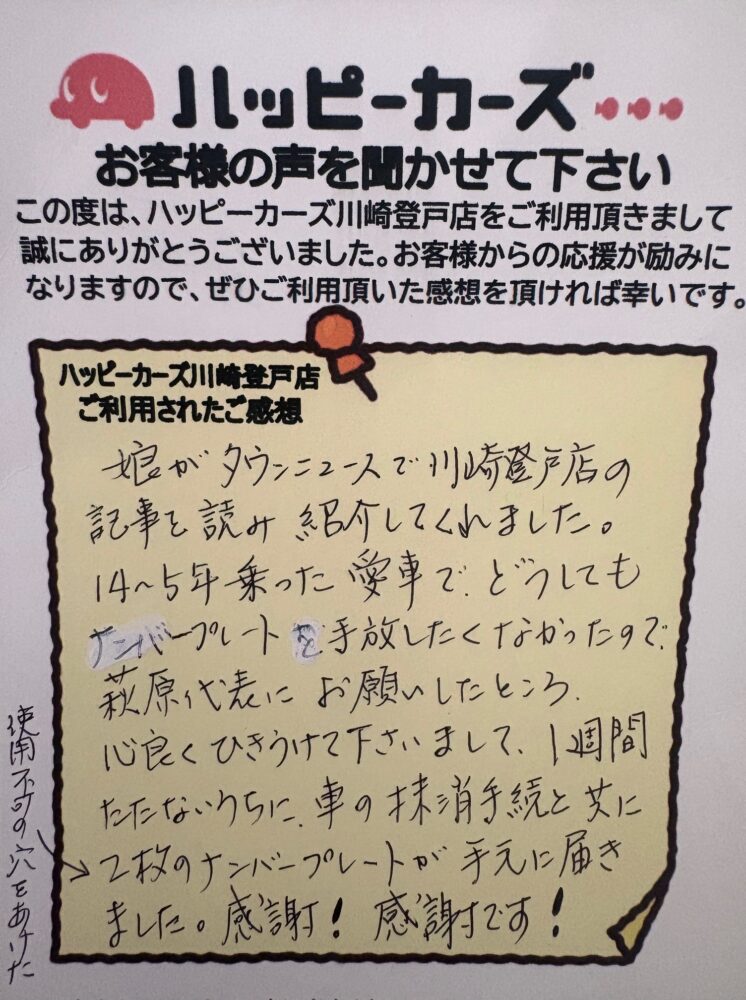 ハッピーカーズ
お客様の声を聞かせて下さい
この度は、ハッピーカーズ川崎登戸店をご利用頂きまして
誠にありがとうございました。お客様からの応援が励みに
なりますので、ぜひご利用頂いた感想を頂ければ幸いです。
ハッピーカーズ川崎登戸店
ご利用されたご感想
娘がタウンニュースで川崎登戸店の
記事を読み紹介してくれました。
14〜5年乗った愛車で、どうしても
ナンバープレートを手放したくなかったので、
萩原代表にお願いしたところ、
心良くひきうけて下さいまして、1週間
たたないうちに、車の抹消手続と共に
2枚のナンバープレートが手元に届き
ました。感謝!感謝です!
使用不可の穴をあけた